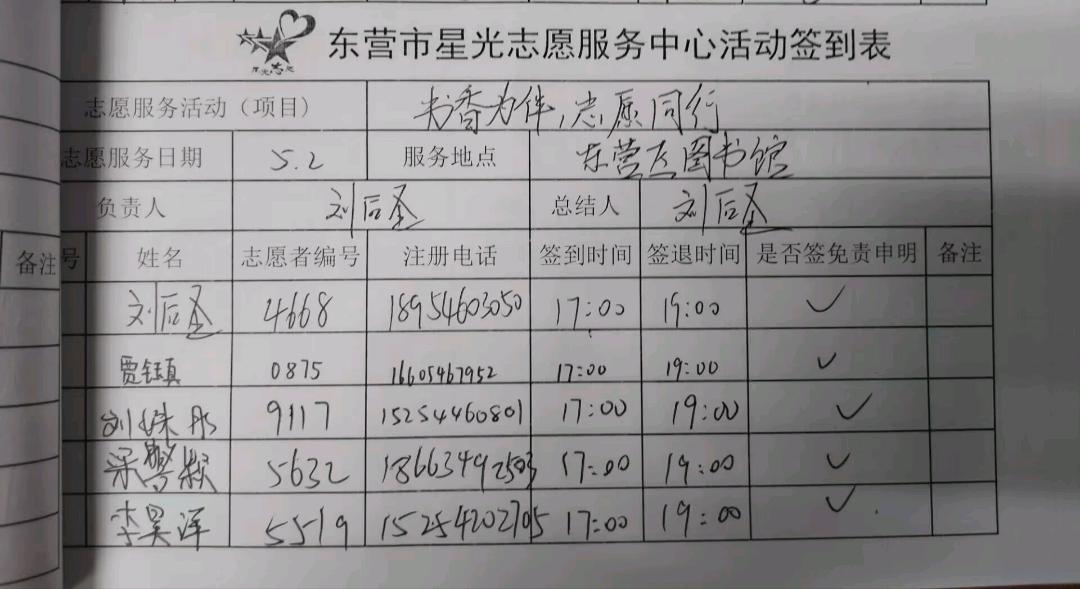 东营市星光志愿服务中心活动签到表
志愿服务活动（项目） 书香为伴，志愿同行
志愿服务日期 5.2 服务地点 东营区图书馆
负责人 刘后圣 总结人 刘后圣
备注 号 姓名 志愿者编号 注册电话 签到时间 签退时间 是否签免责申明 备注
刘后圣 4668 18954603050 17:00 19:00 ✓
贾钰真 0875 16605467952 17:00 19:00 ✓
刘姝彤 9117 15254460801 17:00 19:00 ✓
5632 18663492503 17:00 19:00 ✓
李昊泽 5519 15254202705 17:00 19:00 ✓